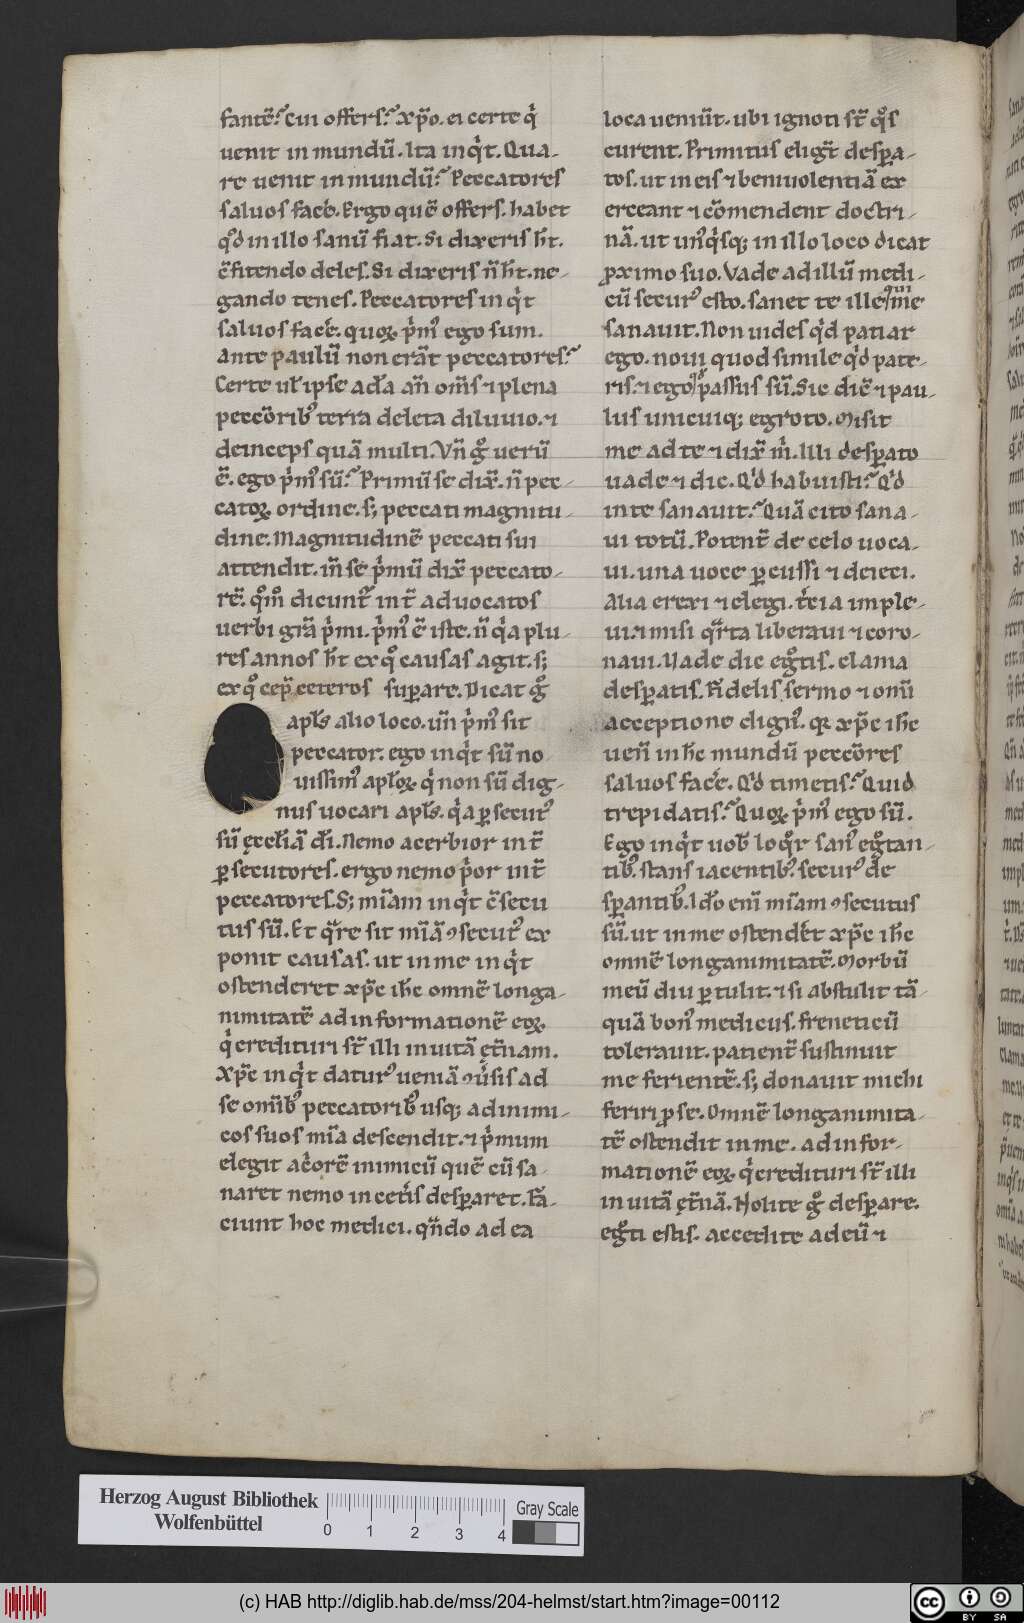 fantē? Cui offers? xp̄o. ei certe qͥ
uenit in mundū. Ita inqͥt. Qua-
re uenit in mundū? Peccatores
saluos face͛. Ergo quē offers. habet
qͦd in illo sanū fiat. Si dixeris h̄t.
c̄fitendo deles. Si dixeris n̄ h̄t. ne-
gando tenes. Peccatores inqͥt
saluos face͛. quoꝝ pͥmꝰ ego sum.
Ante paulū non erāt peccatores?
Certe ul̄ ipse ada̅ an̄ om̄s ⁊ plena
peccōribꝰ terra deleta diluuio. ⁊
deinceps quā multi. Vn̄ gͦ uerū
ē. ego pͥmꝰ sū? Primū se dix̄. n̄ pec-
catoꝝ ordine. sꝫ peccati magnitu-
dine. Magnitudinē peccati sui
attendit. in̄ se pͥmū dix̄ peccato-
rē. qͦm̄ dicunt᷑ int̄ aduocatos
uerbi grā pͥmi. pͥmꝰ ē iste. n̄ qͥa plu-
res annos h̄t ex qͦ causas agit. sꝫ
ex qͦ cep̄ ceteros superare. Dicat gͦ
apl̄s alio loco. un̄ pͥmꝰ sit
peccator. ego inqͥt sū no
uissimꝰ apl̄oꝝ qͥ non sū dig-
nus uocari apl̄s. qͥa ꝑsecutꝰ
sū ęccl̄iā dī. Nemo acerbior int̄
ꝑsecutores. ergo nemo pͥor int̄
peccatores. Sꝫ mīam inqͥt c̄secu
tus sū. Et qͣre sit mīā ꝯsecutꝰ ex
ponit causas. ut in me inqͥt
ostenderet xp̄c ih̄c omnē longa-
nimitatē ad informationē eoꝝ
qͥ credituri st̄ illi in uitā ęt̄nam.
Xp̄c inqͥt daturꝰ ueniā ꝯu͛sis ad
se omībꝰ peccatoribꝰ usqꝫ ad inimi-
cos suos mīa descendit. ⁊ pͥmum
elegit ac͛orē inimicū quē cū sa-
naret nemo in cet͛is desꝑaret. Fā-
ciunt hoc medici. qn̄do ad ea
loca ueniūt. ubi ignoti st̄ qͦs
curent. Primitus eligūt desꝑa-
tos. ut in eis ⁊ beniuolentiā ex
erceant ⁊ cōmendent doctri-
nā. ut unꝰqͥsqꝫ in illo loco dicat
ꝓximo suo. Vade ad illū medi-
cū securꝰ esto. sanet te ille qui me
sanauit. Non uides qͥd patiar
ego. noui quod simile qͥd pate-
ris. ⁊ ego passus sū. Sic dic̄ ⁊ pau-
lus unicuiqꝫ egroto. Misit
me ad te ⁊ dix̄ m̄. Illi desꝑato
uade ⁊ dic. Qͥd habuisti? Qͥd
in te sanauit? Quā cito sana-
ui totū. Potent̄ de celo uoca-
ui. una uoce ꝑcussi ⁊ deieci.
alia erexi ⁊ elegi. t͛cia imple-
ui. ⁊ misi qͣrta liberaui ⁊ coro-
naui. Vade dic egͦtis. clama
desꝑatis. Fidelis sermo ⁊ omī
acceptione dignꝰ. qꝛ xp̄c ih̄c
uen̄ in h̄c mundū peccōres
saluos face͛. Qͥd timetis? Quid
trepidatis? Quoꝝ pͥmꝰ ego sū.
Ego inqͥt uob̄ loqͦr sanꝰ egͦtan-
tibꝰ. stans iacentibꝰ. securꝰ de
sꝑantibꝰ. Ido̅ enī mīam ꝯsecutus
sū. ut in me ostende͛t xp̄c ih̄c
omnē longanimitatē. Morbū
meū diu ꝑtulit. ⁊ si abstulit tā-
quā bonꝰ medicus. freneticū
tolerauit. patient̄ sustinuit
me ferientē. sꝫ donauit michi
feriri ꝓ se. Omnē longanimita-
tē ostendit in me. ad infor-
mationē eoꝝ qͥ credituri st̄ illi
in uitā ęt̄nā. Nolite gͦ desꝑare.
egͦti estis. accedite ad eū ⁊
Herzog August Bibliothek
Wolfenbüttel
0 1 2 3 4
Gray Scale
(c) HAB http://diglib.hab.de/mss/204-helmst/start.htm?image=00112
cc BY SA